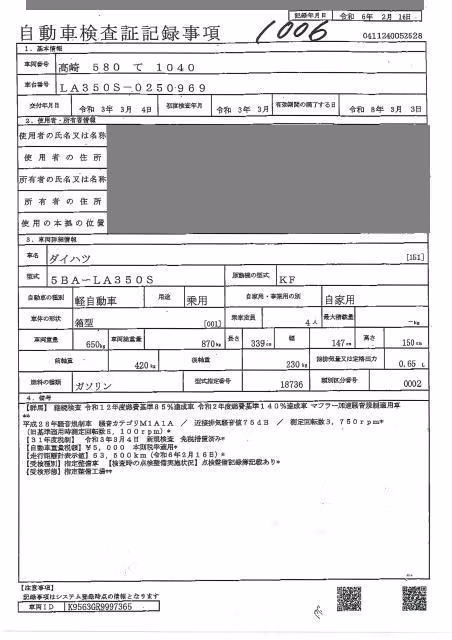 記録年月日 令和 6年 2月 16日
自動車検査証記録事項
1006
0411240052528
1．基本情報
車両番号 高崎 580 て 1040
車台番号 LA350S－0250969
交付年月日 令和 3年 3月 4日 初度検査年月 令和 3年 3月 有効期間の満了する日 令和 8年 3月 3日
2．使用者・所有者情報
使用者の氏名又は名称
使用者の住所
所有者の氏名又は名称
所有者の住所
使用の本拠の位置
3．車両詳細情報
車名 ダイハツ [151]
型式 5BA－LA350S 原動機の型式 KF
自動車の種別 軽自動車 用途 乗用 自家用・事業用の別 自家用
車体の形状 箱型 [001] 乗車定員 4人 最大積載量 －kg
車両重量 650kg 車両総重量 870kg 長さ 339cm 幅 147cm 高さ 150cm
前軸重 420kg 後軸重 230kg 総排気量又は定格出力 0.65 L
燃料の種類 ガソリン 型式指定番号 18736 類別区分番号 0002
4．備考
【群馬】 継続検査 令和12年度燃費基準85％達成車 令和2年度燃費基準140％達成車 マフラー加速騒音規制適用車
**
平成28年騒音規制車 騒音カテゴリM1A1A ／ 近接排気騒音値75dB ／ 測定回転数3，750rpm*
（旧基準適用時測定回転数5，100rpm）*
【31年度税制】 令和3年3月4日 新規検査 免税措置済み*
【自動車重量税額】¥5，000 本則税率適用*
【走行距離計表示値】53，500km（令和6年2月16日）*
【受検種別】指定整備車 【検査時の点検整備実施状況】点検整備記録簿記載あり*
【受検形態】指定整備工場**
【注意事項】
記録事項はシステム登録時点の情報となります
車両ID K9563GR9997365